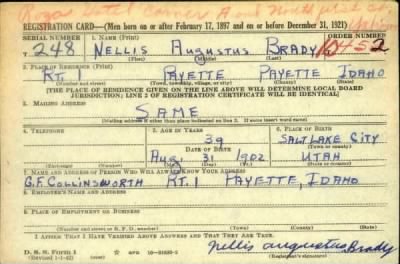 REGISTRATION CARD—(Men born on or after February 17, 1897 and on or before December 31, 1921)
SERIAL NUMBER 1. NAME (Print) ORDER NUMBER
248 NELLIS Augustus BRADY 10452
(First) (Middle) (Last)
2. PLACE OF RESIDENCE (Print)
RT. PAYETTE PAYETTE IDAHO
(Number and street) (Town, township, village, or city) (County) (State)
[THE PLACE OF RESIDENCE GIVEN ON THE LINE ABOVE WILL DETERMINE LOCAL BOARD
JURISDICTION; LINE 2 OF REGISTRATION CERTIFICATE WILL BE IDENTICAL]
3. MAILING ADDRESS
SAME
(Mailing address if other than place indicated on line 2. If same insert word same)
4. TELEPHONE 5. AGE IN YEARS 6. PLACE OF BIRTH
39 SALT LAKE CITY
DATE OF BIRTH (Town or county)
AUG. 31 1902 UTAH
(Exchange) (Number) (Mo.) (Day) (Yr.) (State or country)
7. NAME AND ADDRESS OF PERSON WHO WILL ALWAYS KNOW YOUR ADDRESS
G.F. COLLINSWORTH RT. 1 PAYETTE, IDAHO
8. EMPLOYER'S NAME AND ADDRESS
9. PLACE OF EMPLOYMENT OR BUSINESS
(Number and street or R. F. D. number) (Town) (County) (State)
I AFFIRM THAT I HAVE VERIFIED ABOVE ANSWERS AND THAT THEY ARE TRUE.
D. S. S. Form 1
Nellis Augustus Brady